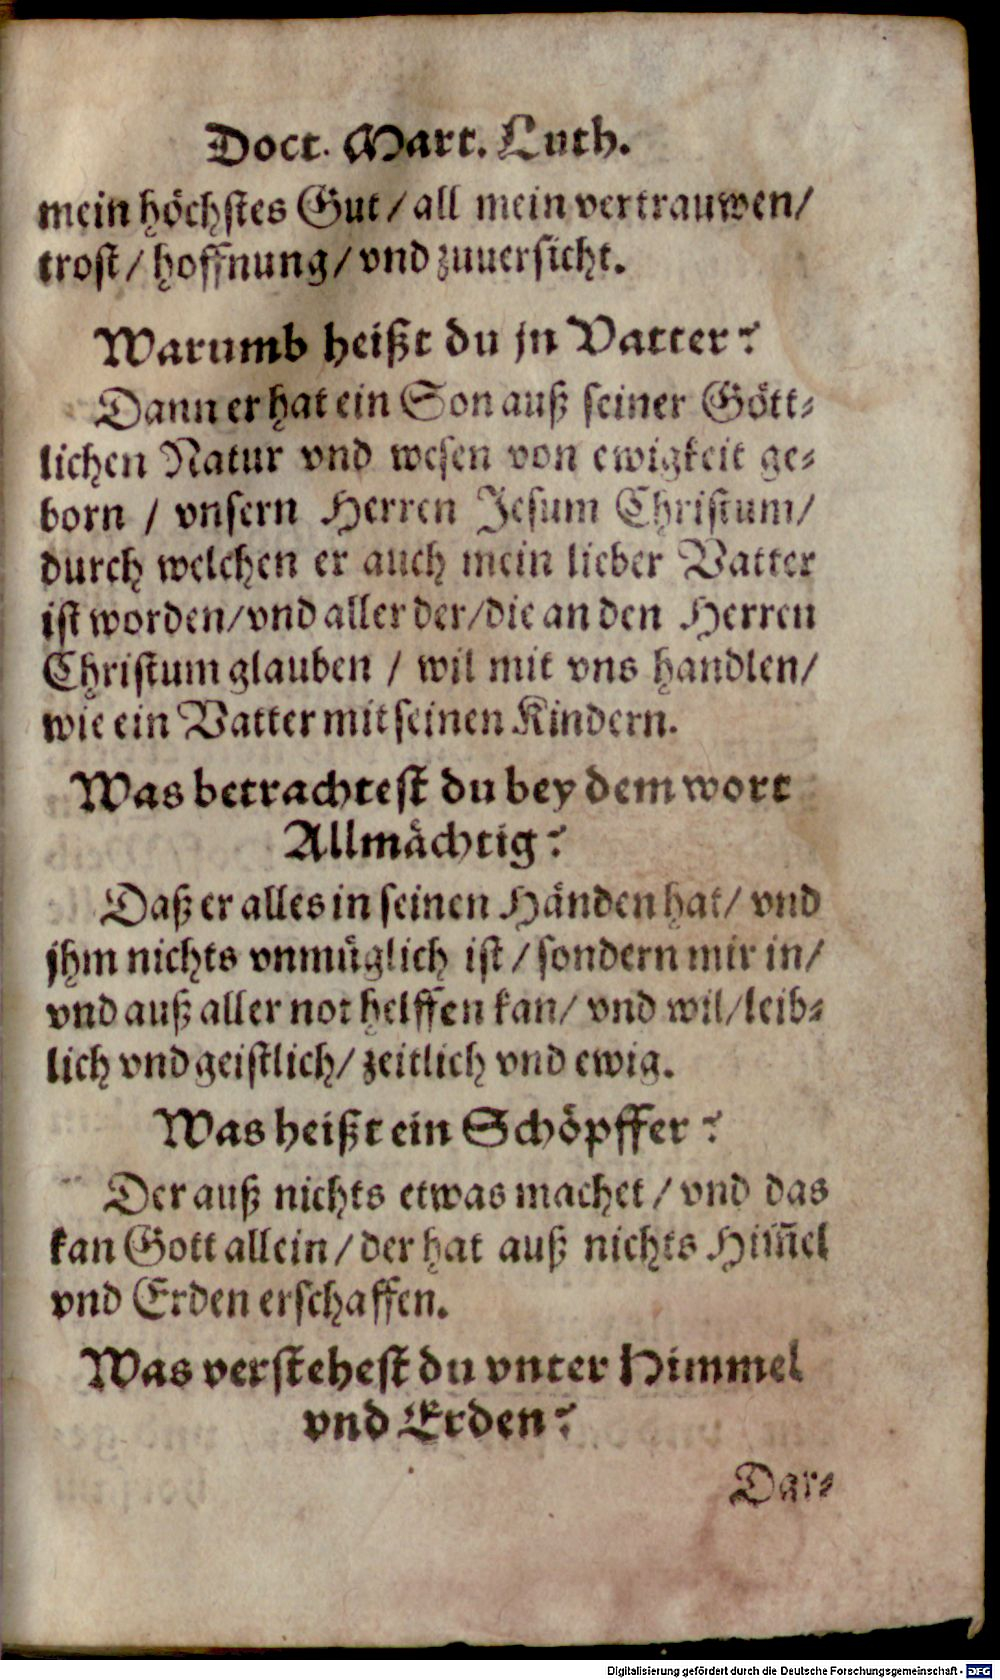 Doct. Mart. Luth.
mein höchstes Gut / all mein vertrauwen /
trost / hoffnung / vnd zuuersicht.
Warumb heißt du jn Vatter?
Dann er hat ein Son auß seiner Gött-
lichen Natur vnd wesen von ewigkeit ge-
born / vnsern Herren Jesum Christum /
durch welchen er auch mein lieber Vatter
ist worden / vnd aller der / die an den Herren
Christum glauben / wil mit vns handlen /
wie ein Vatter mit seinen Kindern.
Was betrachtest du bey dem wort
Allmächtig?
Daß er alles in seinen Händen hat / vnd
jhm nichts vnmüglich ist / sondern mir in /
vnd auß aller not helffen kan / vnd wil / leib-
lich vnd geistlich / zeitlich vnd ewig.
Was heißt ein Schöpffer?
Der auß nichts etwas machet / vnd das
kan Gott allein / der hat auß nichts Him̃el
vnd Erden erschaffen.
Was verstehest du vnter Himmel
vnd Erden?
Dar-
Digitalisierung gefördert durch die Deutsche Forschungsgemeinschaft - DFG